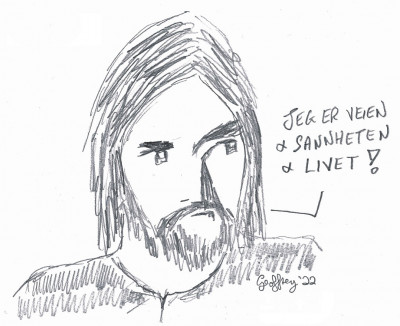 JEG ER VEIEN
& SANNHETEN
& LIVET!
Geoffrey '22